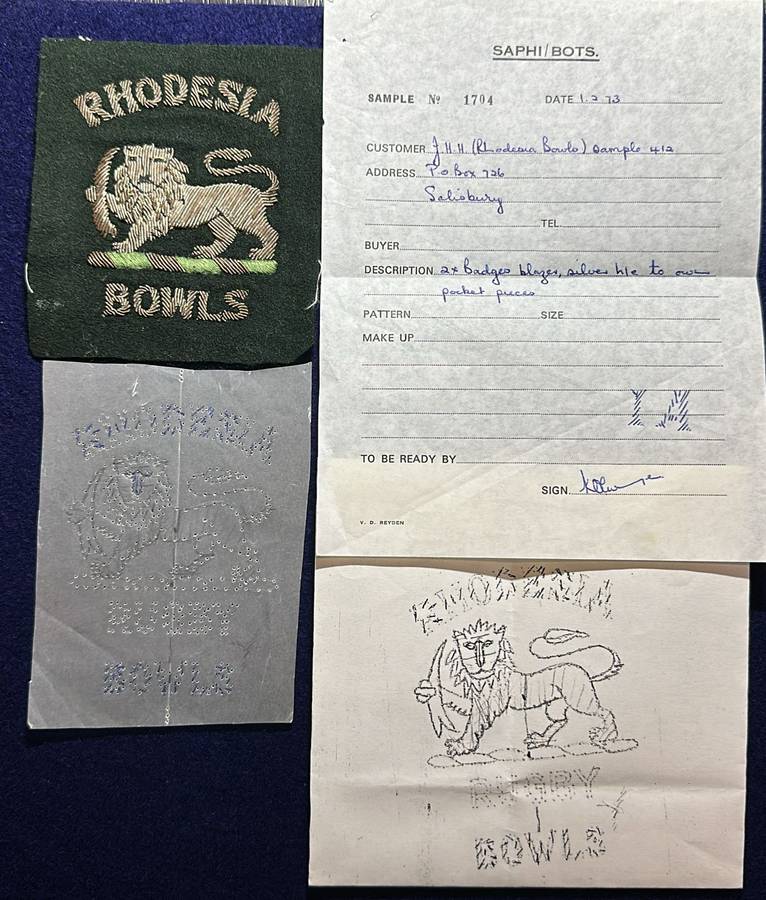 RHODESIA
BOWLS
SAPHI/BOTS.
SAMPLE No 1704 DATE 1.2.73
CUSTOMER J.H.H (Rhodesia Bowls) Sample 412
ADDRESS P.O Box 726
Salisbury
TEL
BUYER
DESCRIPTION 2x Badges blazer, silver h/e to own
pocket pieces
PATTERN SIZE
MAKE UP
TO BE READY BY
SIGN.
V. D. REYDEN
RHODESIA
RUGBY
BOWLS
RHODESIA
RUGBY
BOWLS